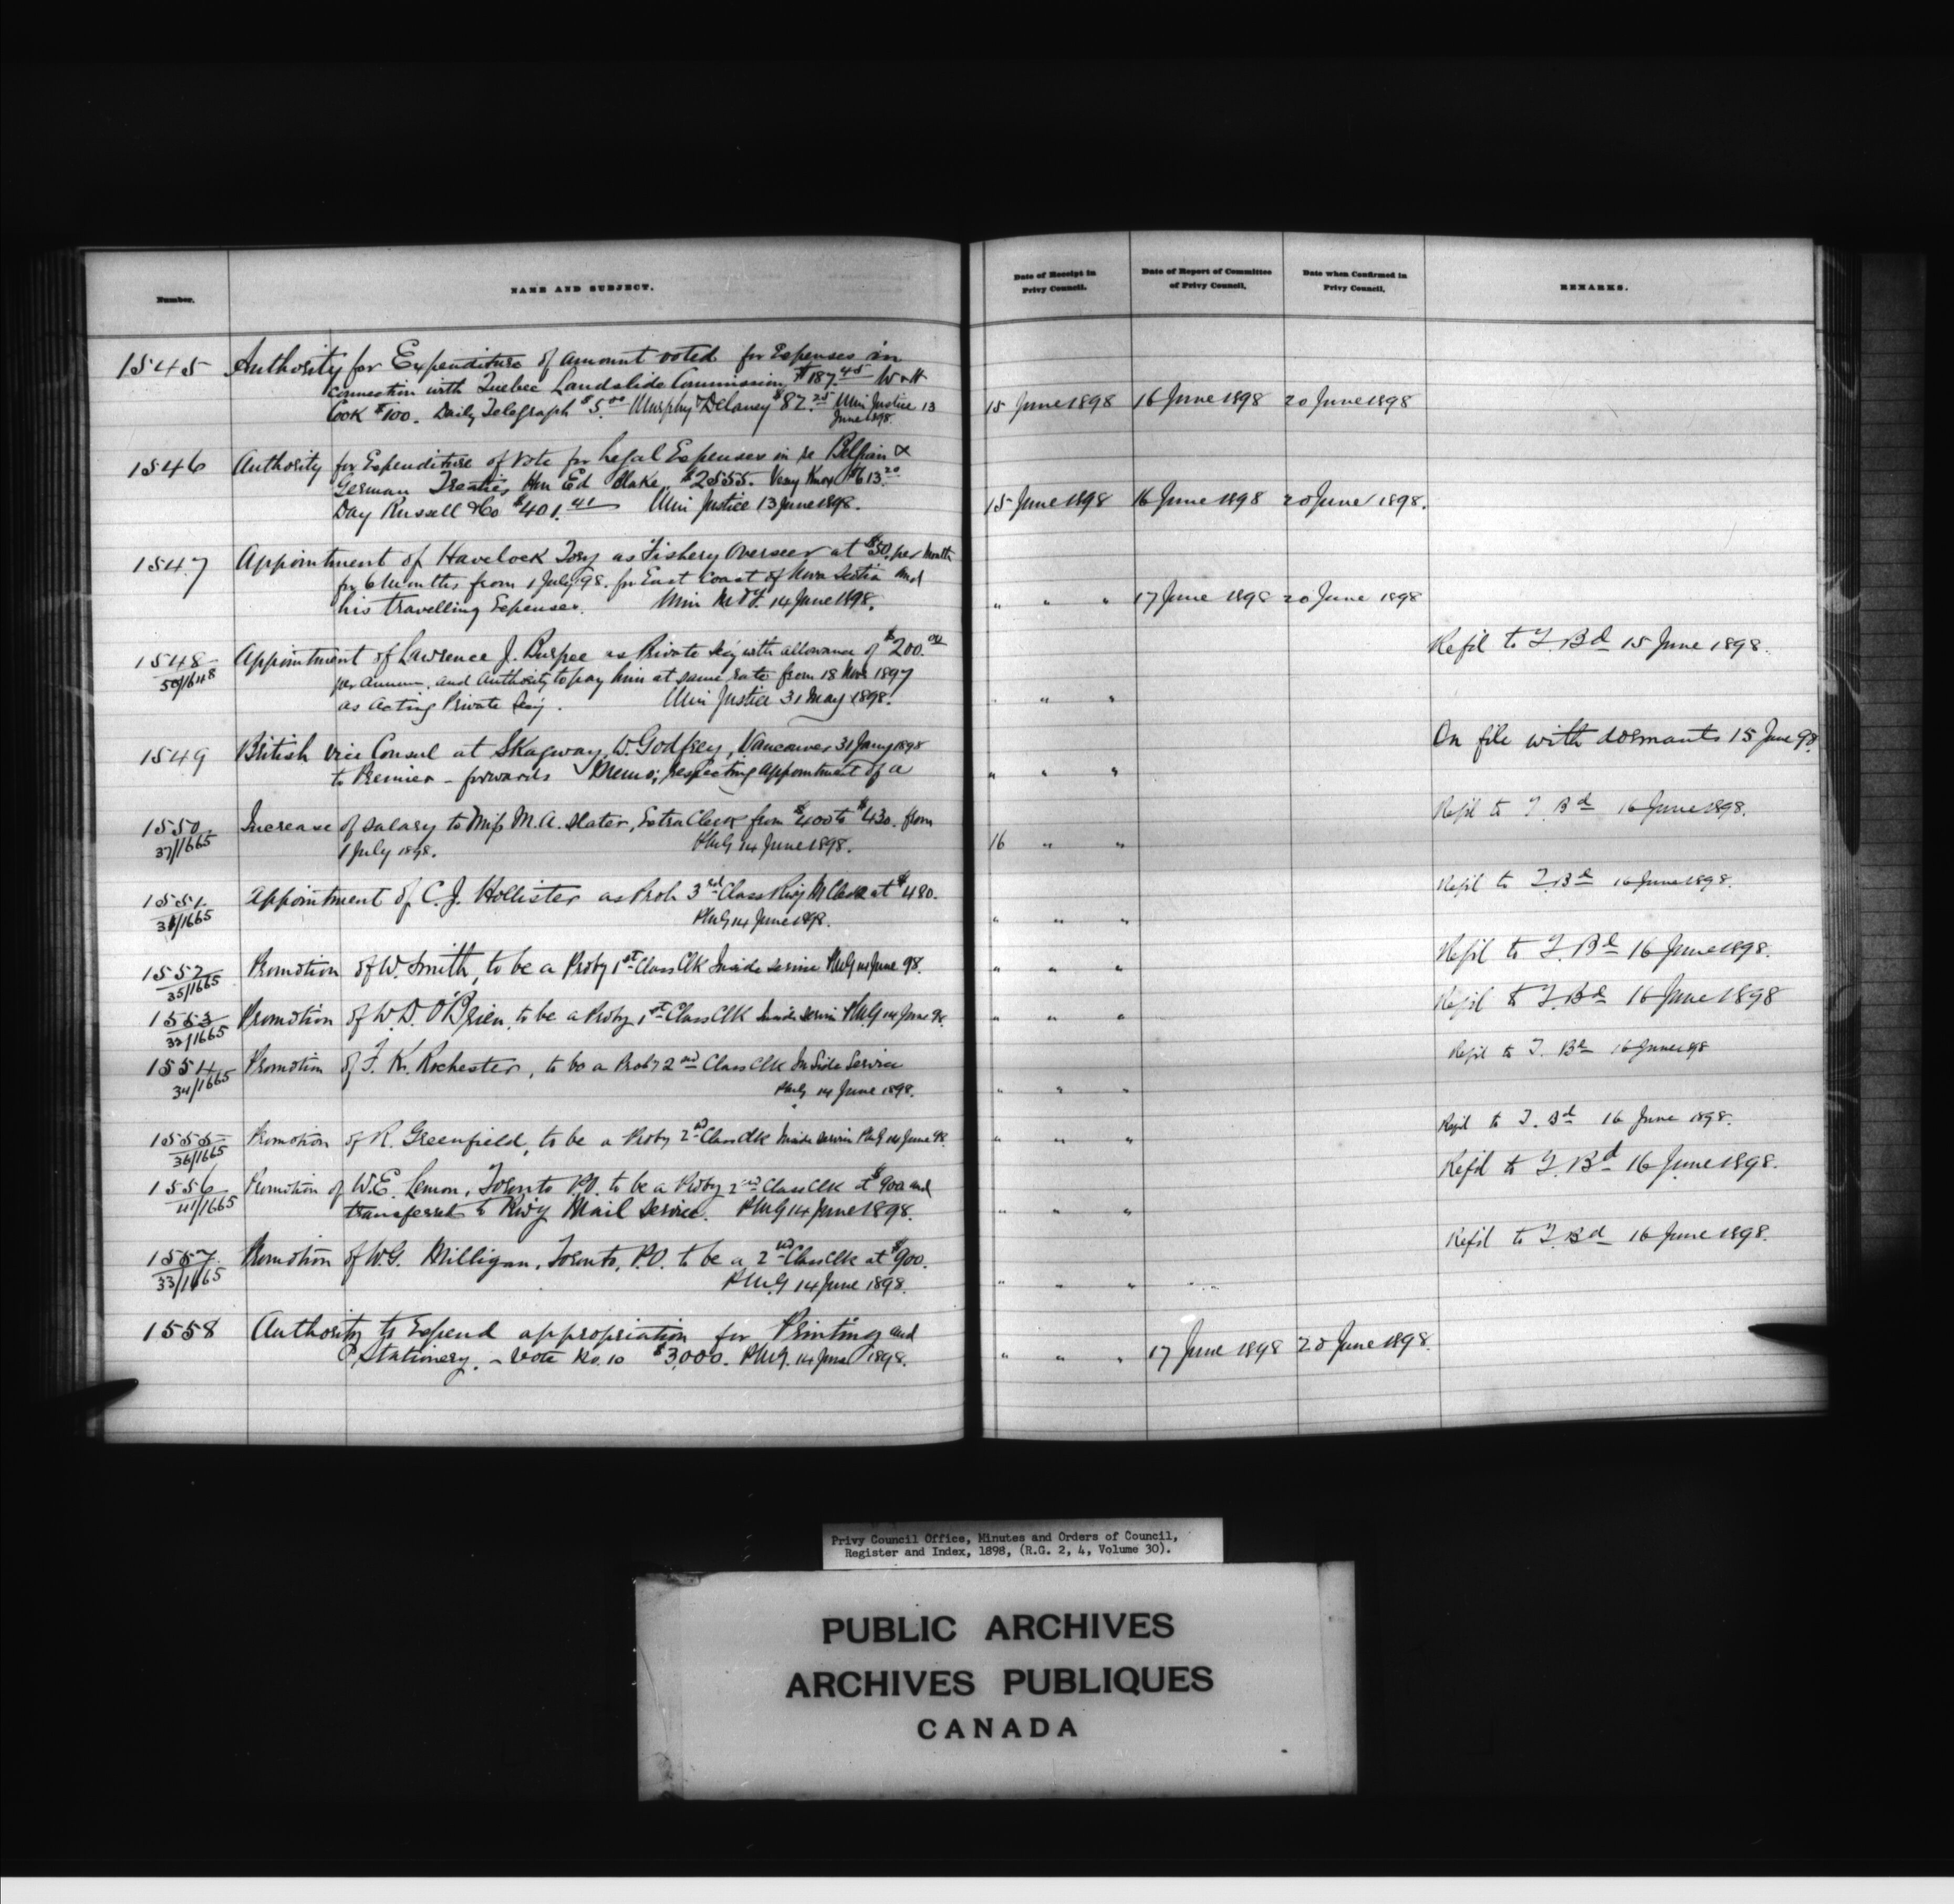 Number.
NAME AND SUBJECT.
Date of Receipt in Privy Council.
Date of Report of Committee of Privy Council.
Date when Confirmed in Privy Council.
REMARKS.
1545 Authority for Expenditure of amount voted for Expenses in
connection with Quebec Landslide Commission, $187.45 W & H
Cook $100. Daily Telegraph $5.00 Murphy & Delaney $82.25 Min Justice 13
June 1898.
15 June 1898 16 June 1898 20 June 1898
1546 Authority for Expenditure of Vote for Legal Expenses in re Belgian &
German Treaties Hon Ed Blake, $2555. Very Knox $613.20
Day Russell & Co $401.41 Min Justice 13 June 1898.
15 June 1898 16 June 1898 20 June 1898.
1547 Appointment of Havelock Tory as Fishery Overseer at $50. per month
for 6 months, from 1 July 98. for East Coast of Nova Scotia and
his travelling Expenses. Min M & F. 14 June 1898.
" " " 17 June 1898 20 June 1898
1548 Appointment of Lawrence J. Burpee as Private Secy with allowance of $200.00
50/648 per annum, and Authority to pay him at same rate from 18 Nov 1897
as Acting Private Secy. Min Justice 31 May 1898.
" " "
Refd to T. Bd 15 June 1898.
1549 British Vice Consul at Skagway, W. Godfrey, Vancouver 31 Jany 1898
to Premier - forwards Memo; respecting appointment of a
" " "
On file with dormants 15 June 98.
1550 Increase of salary to Miss M. A. Slater, Extra Clerk from $400 to $430. from
37/1665 1 July 1898. PMG 14 June 1898.
16 " "
Refd to T. Bd 16 June 1898.
1551 Appointment of C. J. Hollister as Prob. 3rd Class Rwy M Clerk at $480.
31/1665 PMG 14 June 1898.
" " "
Refd to T. Bd 16 June 1898.
1552 Promotion of W. Smith, to be a Proby 1st Class Clk Inside Service PMG 14 June 98.
35/1665
" " "
Refd to T. Bd 16 June 1898.
1553 Promotion of W. D. O'Brien, to be a Proby 1st Class Clk Inside Service PMG 14 June 98.
32/1665
" " "
Refd to T. Bd 16 June 1898
1554 Promotion of F. K. Rochester, to be a Proby 2nd Class Clk Inside Service
34/1665 PMG 14 June 1898.
" " "
Refd to T. Bd 16 June 1898
1555 Promotion of R. Greenfield, to be a Proby 2nd Class Clk Inside Service PMG 14 June 98.
36/1665
" " "
Refd to T. Bd 16 June 1898.
1556 Promotion of W. E. Lemon, Toronto P.O. to be a Proby 2nd Class Clk at $900 and
41/1665 transferred to Rwy Mail Service. PMG 14 June 1898.
" " "
Refd to T. Bd 16 June 1898.
1557 Promotion of W. G. Milligan, Toronto, P.O. to be a 2nd Class Clk at $900.
33/1665 PMG 14 June 1898.
" " "
Refd to T. Bd 16 June 1898.
1558 Authority to Expend appropriation for Printing and
Stationery. - Vote No. 10 $3,000. PMG. 14 June 1898.
" " " 17 June 1898 20 June 1898.
Privy Council Office, Minutes and Orders of Council,
Register and Index, 1898, (R.G. 2, 4, Volume 30).
PUBLIC ARCHIVES
ARCHIVES PUBLIQUES
CANADA